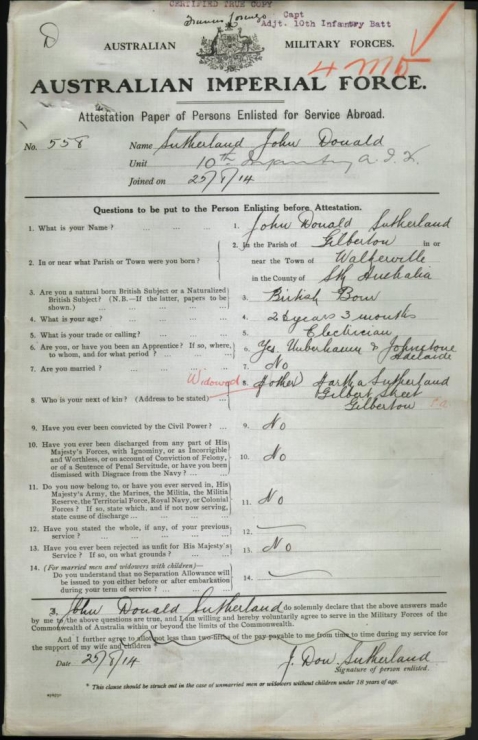 CERTIFIED TRUE COPY
Capt
Adjt. 10th Infantry Batt
D
AUSTRALIAN MILITARY FORCES.
AUSTRALIAN IMPERIAL FORCE.
Attestation Paper of Persons Enlisted for Service Abroad.
No. 558 Name Sutherland John Donald
Unit 10th Infantry A.I.F.
Joined on 25/8/14
Questions to be put to the Person Enlisting before Attestation.
1. What is your Name ? ... ... 1. John Donald Sutherland
2. In or near what Parish or Town were you born ? 2. In the Parish of Gilberton in or
near the Town of Walkerville
in the County of Sth Australia
3. Are you a natural born British Subject or a Naturalized
British Subject? (N.B.—If the letter, papers to be
shown.) 3. British Born
4. What is your age? 4. 26 years 3 months
5. What is your trade or calling? 5. Electrician
6. Are you, or have you been an Apprentice? If so, where,
to whom, and for what period ? 6. Yes. Unbehaun & Johnstone
Adelaide
7. Are you married? 7. No
8. Who is your next of kin? (Address to be stated) 8. Widowed Mother Martha Sutherland
Gilbert Street
Gilberton
9. Have you ever been convicted by the Civil Power? 9. No
10. Have you ever been discharged from any part of His
Majesty's Forces, with Ignominy, or as Incorrigible
and Worthless, or on account of Conviction of Felony,
or of a Sentence of Penal Servitude, or have you been
dismissed with Disgrace from the Navy? 10. No
11. Do you now belong to, or have you ever served in, His
Majesty's Army, the Marines, the Militia, the Militia
Reserve, the Territorial Force, Royal Navy, or Colonial
Forces? If so, state which, and if not now serving,
state cause of discharge 11. No
12. Have you stated the whole, if any, of your previous
service ? 12. —
13. Have you ever been rejected as unfit for His Majesty's
Service ? If so, on what grounds? 13. No
14. (For married men and widowers with children)—
Do you understand that no Separation Allowance will
be issued to you either before or after embarkation
during your term of service? 14. —
3. John Donald Sutherland do solemnly declare that the above answers made
by me to the above questions are true, and I am willing and hereby voluntarily agree to serve in the Military Forces of the
Commonwealth of Australia within or beyond the limits of the Commonwealth.
And I further agree to allot not less than two-fifths of the pay payable to me from time to time during my service for
the support of my wife and children *
Date 25/8/14 J. Don. Sutherland
Signature of person enlisted.
* This clause should be struck out in the case of unmarried men or widowers without children under 18 years of age.